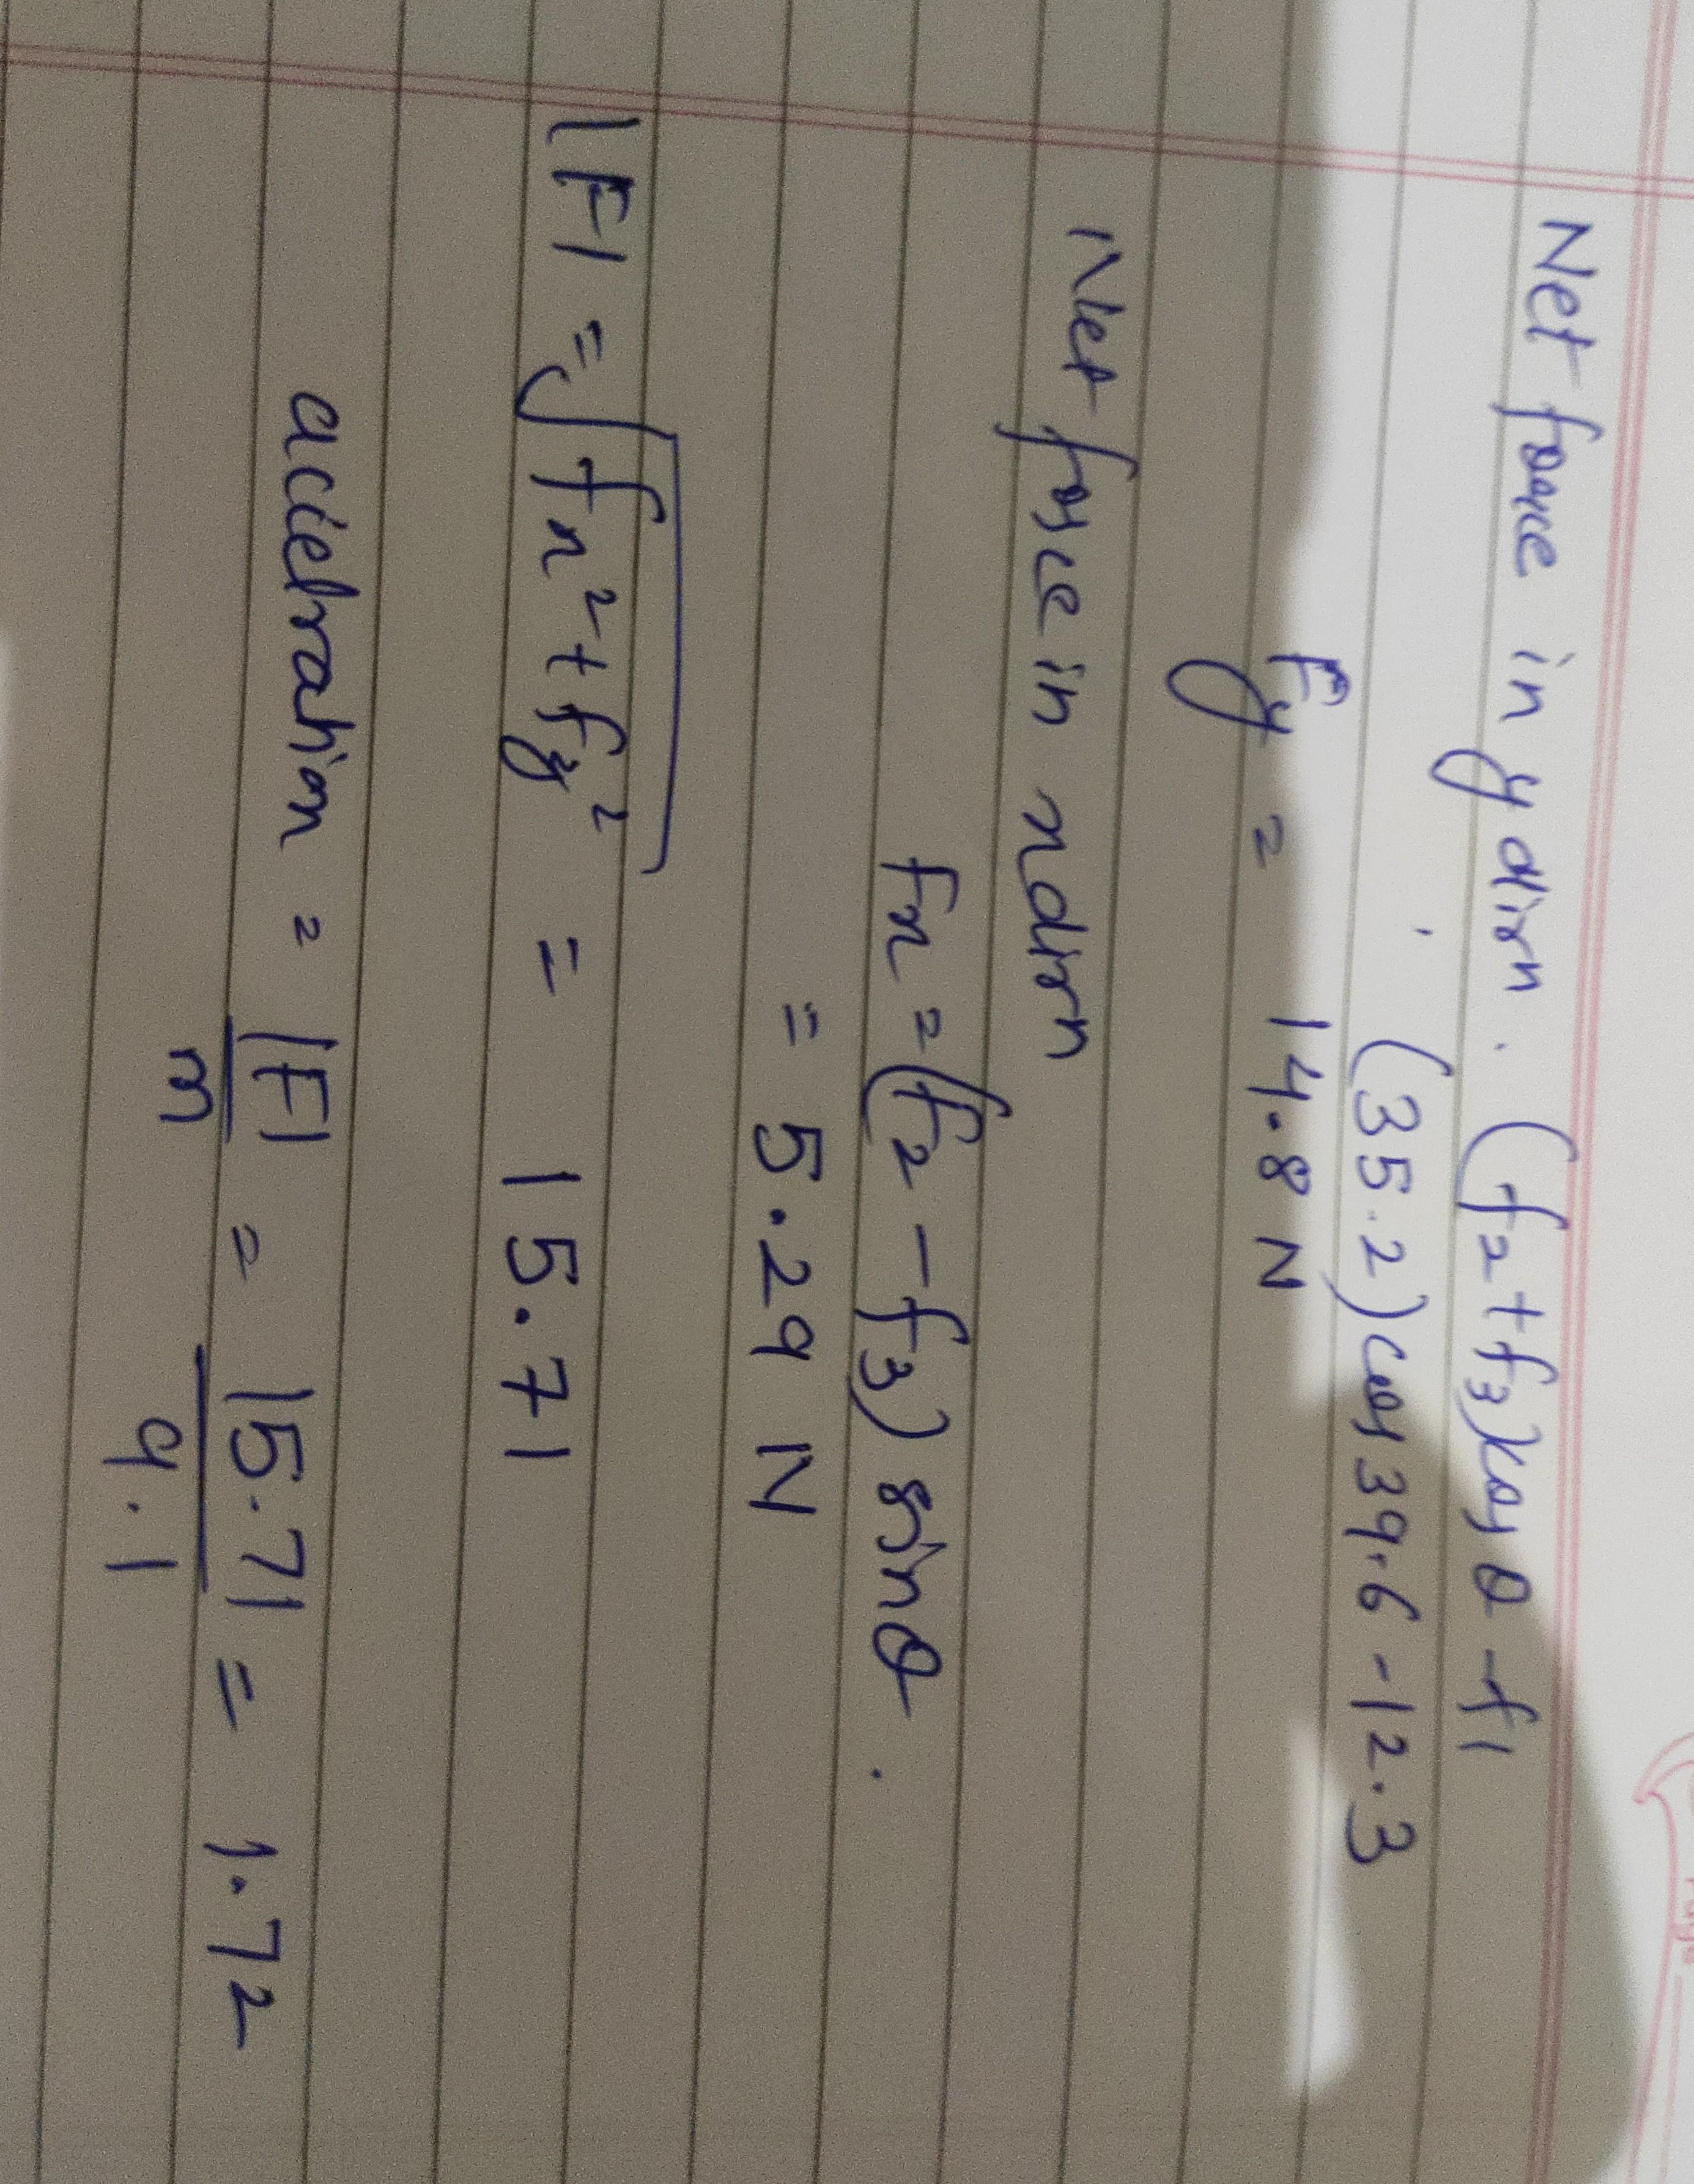 Net force in y dirn. (f2+f3)cosθ-f1
(35.2)cos39.6-12.3
Fy = 14.8 N
Net force in x dirn
Fx = (f2 - f3) sinθ.
= 5.29 N
|F| = √fx²+fy² = 15.71
accelration = |F|/m = 15.71/9.1 = 1.72